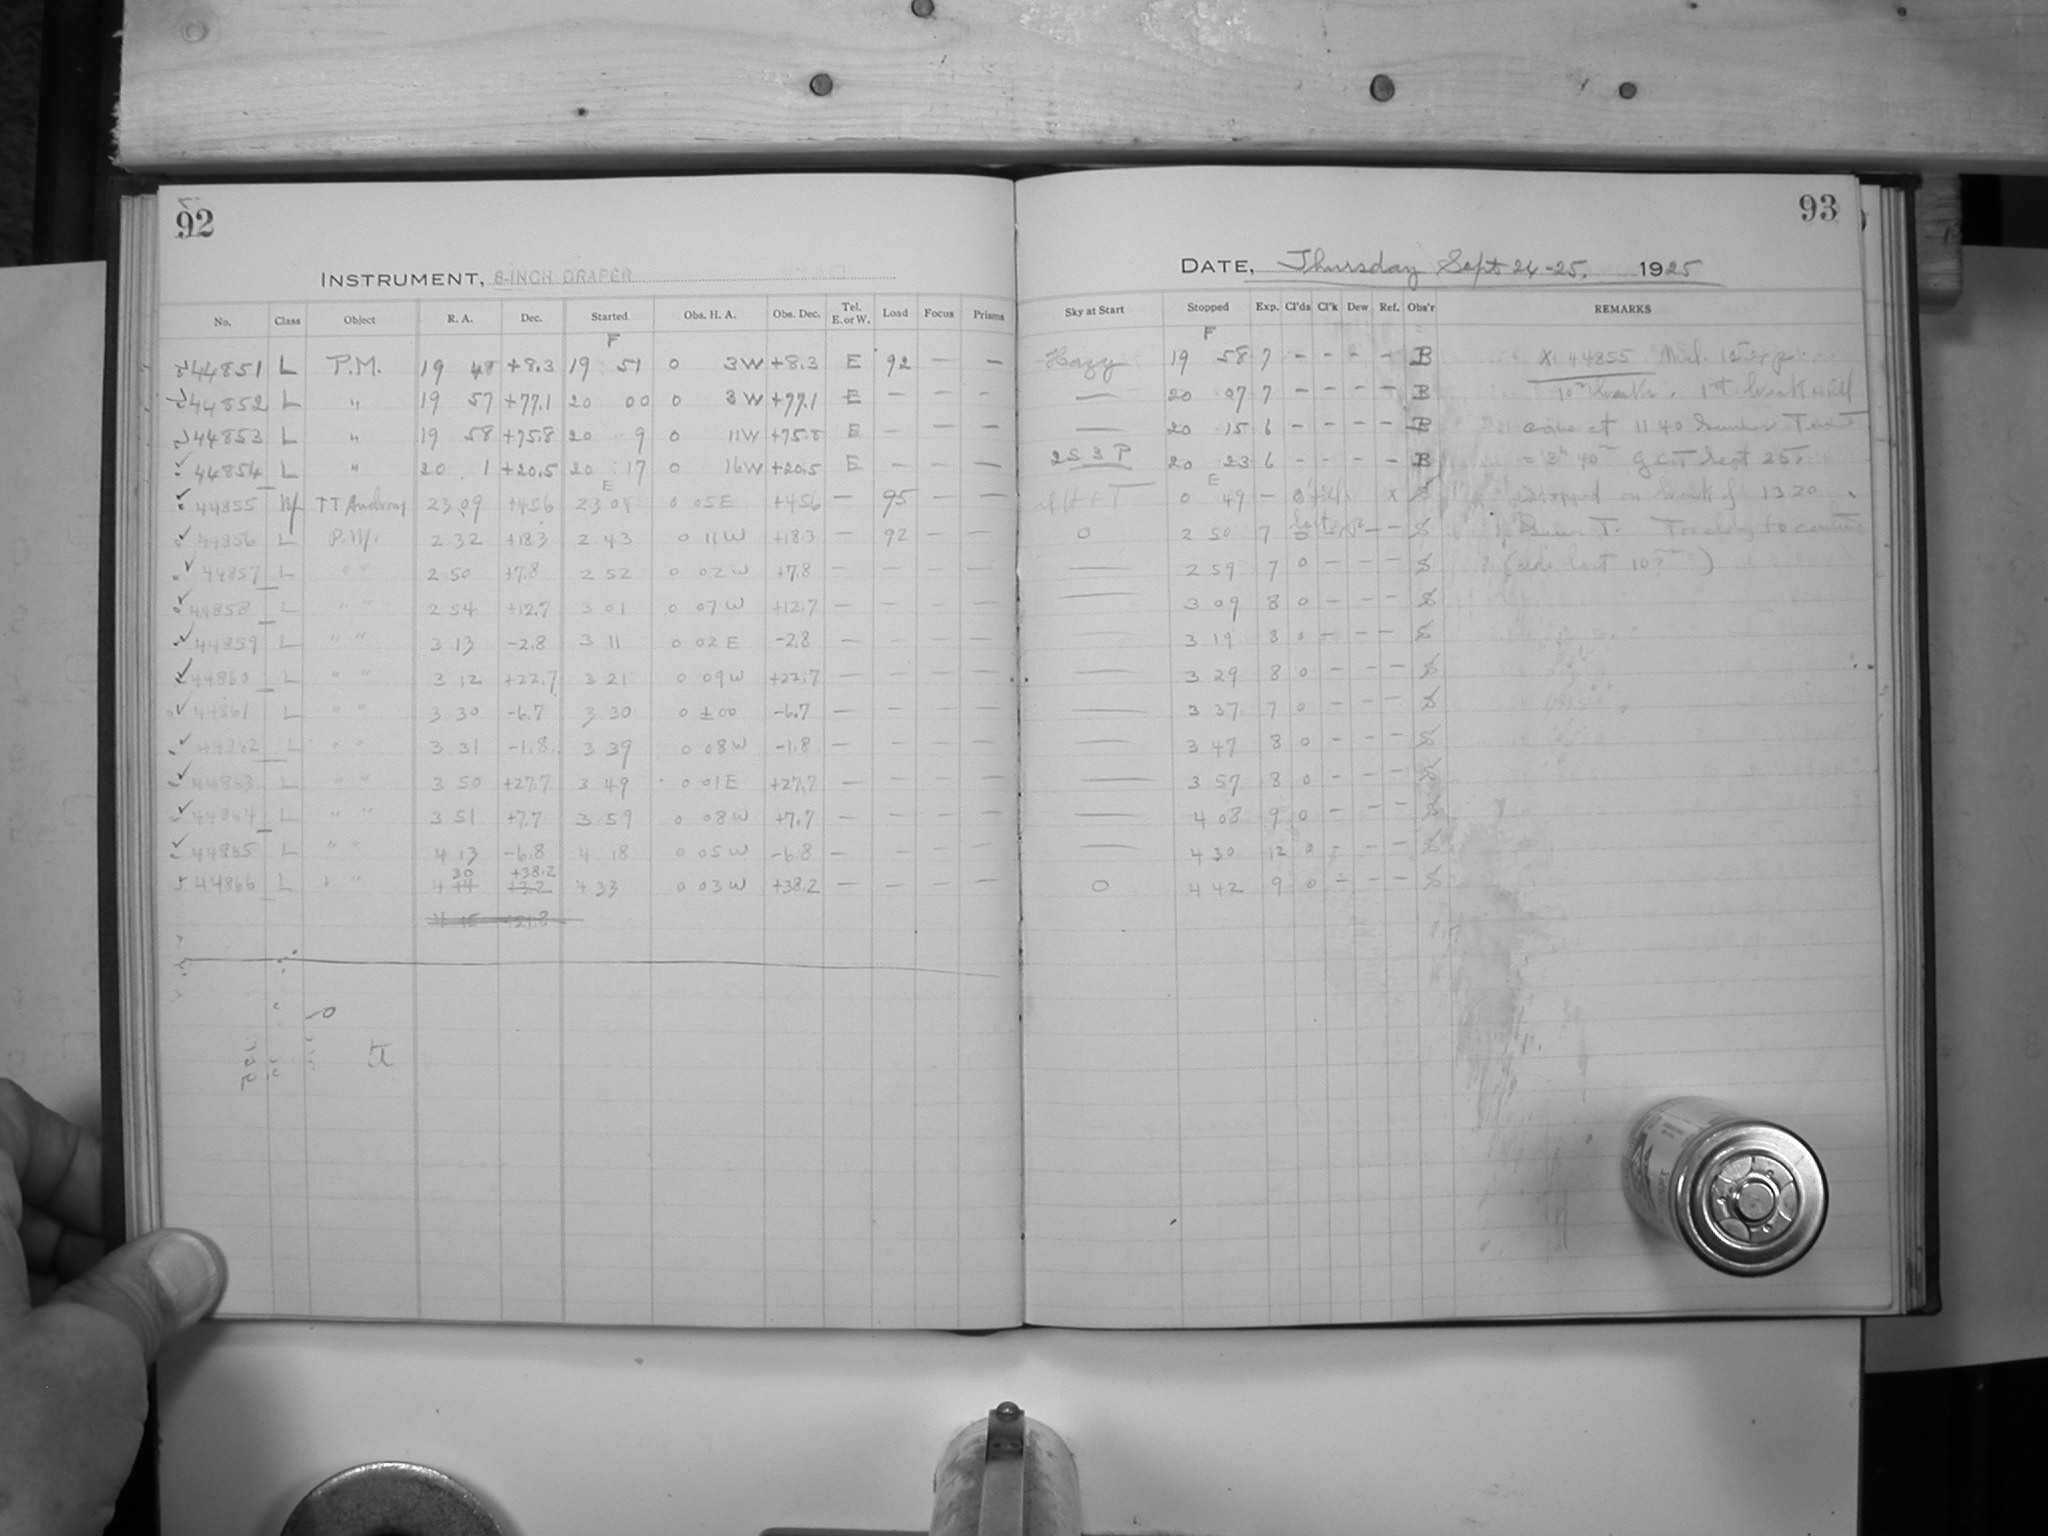 92
INSTRUMENT, 8-INCH DRAPER
No. Class Object R. A. Dec. Started Obs. H. A. Obs. Dec. Tel. E. or W. Load Focus Prisms
F
44851 L P.M. 19 48 +8.3 19 51 0 3W +8.3 E 92 — —
44852 L " 19 57 +77.1 20 00 0 3W +77.1 E — — —
44853 L " 19 58 +75.8 20 9 0 11W +75.8 E — — —
44854 L " 20 1 +20.5 20 17 0 16W +20.5 E — — —
E
44855 TT 23 09 +45.6 23 04 0 05E +45.6 — 95
44856 L P.M. 2 32 +18.3 2 43 0 11W +18.3 — 92 — —
44857 L " " 2 50 +7.8 2 52 0 02W +7.8 — — — —
44858 L " " 2 54 +12.7 3 01 0 07W +12.7 — — — —
44859 L " " 3 13 -2.8 3 11 0 02E -2.8 — — — —
44860 L " " 3 12 +22.7 3 21 0 09W +22.7 — — — —
44861 L " " 3 30 -6.7 3 30 0 ±00 -6.7 — — — —
44862 L " " 3 31 -1.8 3 39 0 08W -1.8 — — — —
44863 L " " 3 50 +27.7 3 49 0 01E +27.7 — — — —
44864 L " " 3 51 +7.7 3 59 0 08W +7.7 — — — —
44865 L " " 4 13 -6.8 4 18 0 05W -6.8 — — — —
30 +38.2
44866 L " " 4 44 +3.2 4 33 0 03W +38.2 — — — —
93
DATE, Thursday Sept 24-25, 1925
Sky at Start Stopped Exp. Cl'ds Cl'k Dew Ref. Obs'r REMARKS
F
Hazy 19 58 7 - - - - B X 44855
— 20 07 7 - - - - B 1st break will
— 20 15 6 - - - - B come at 11 40 Summer Time
2S3P 20 23 6 - - - - B = 3h 40m GCT Sept 25.
E
0 49 - X S Stopped on break of 13 20
0 2 50 7 0 - - S Sum T. Too cloudy to continue
— 2 59 7 0 - - - S last 10m )
— 3 09 8 0 - - - S
— 3 19 8 0 - - - S
— 3 29 8 0 - - - S
— 3 37 7 0 - - - S
— 3 47 8 0 - - - S
— 3 57 8 0 - - - S
— 4 08 9 0 - - - S
— 4 30 12 0 - - - S
0 4 42 9 0 - - - S